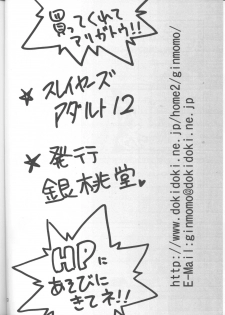 買ってくれて
アリガトウ!!
★スレイヤーズ
アダルト12
★発行
銀桃堂♥
HPに
あそびに
きてネ!!
http://www.dokidoki.ne.jp/home2/ginmomo/
E-Mail:ginmomo@dokidoki.ne.jp